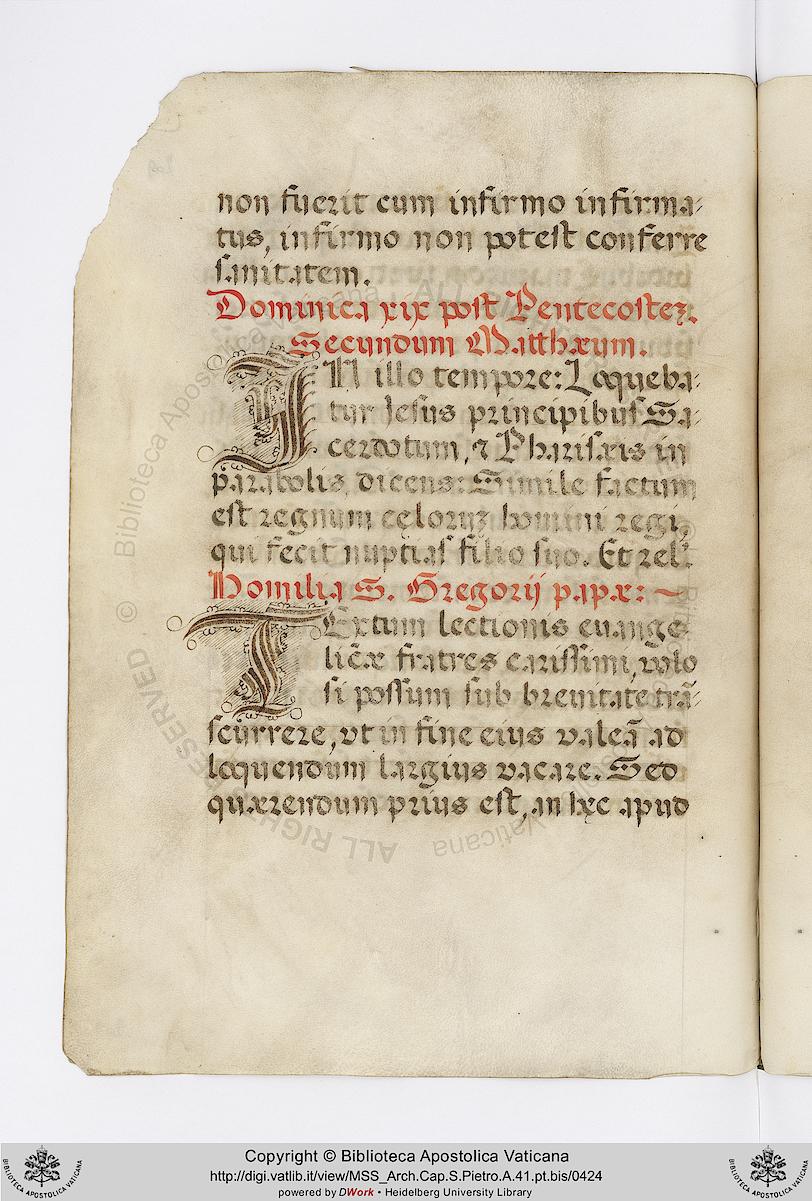 non fuerit cum infirmo infirma-
tus, infirmo non potest conferre
sanitatem.
Dominica xix post Pentecosteꝫ.
Secundum Matthæum.
IN illo tempore: Loqueba-
tur Iesus principibus Sa-
cerdotum, ⁊ Pharisæis in
parabolis, dicens: Simile factum
est regnum cęloruꝫ homini regi,
qui fecit nuptias filio suo. Et rel.
Homilia S. Gregorij papæ:~
TExtum lectionis euange-
licæ fratres carissimi, volo
si possum sub breuitate trā-
scurrere, vt in fine eius valeā ad
loquendum largius vacare. Sed
quærendum prius est, an hęc apud
Copyright © Biblioteca Apostolica Vaticana
http://digi.vatlib.it/view/MSS_Arch.Cap.S.Pietro.A.41.pt.bis/0424
powered by DWork • Heidelberg University Library
BIBLIOTECA APOSTOLICA VATICANA
BIBLIOTECA APOSTOLICA VATICANA
© Biblioteca Apostolica Vaticana ALL RIGHTS RESERVED